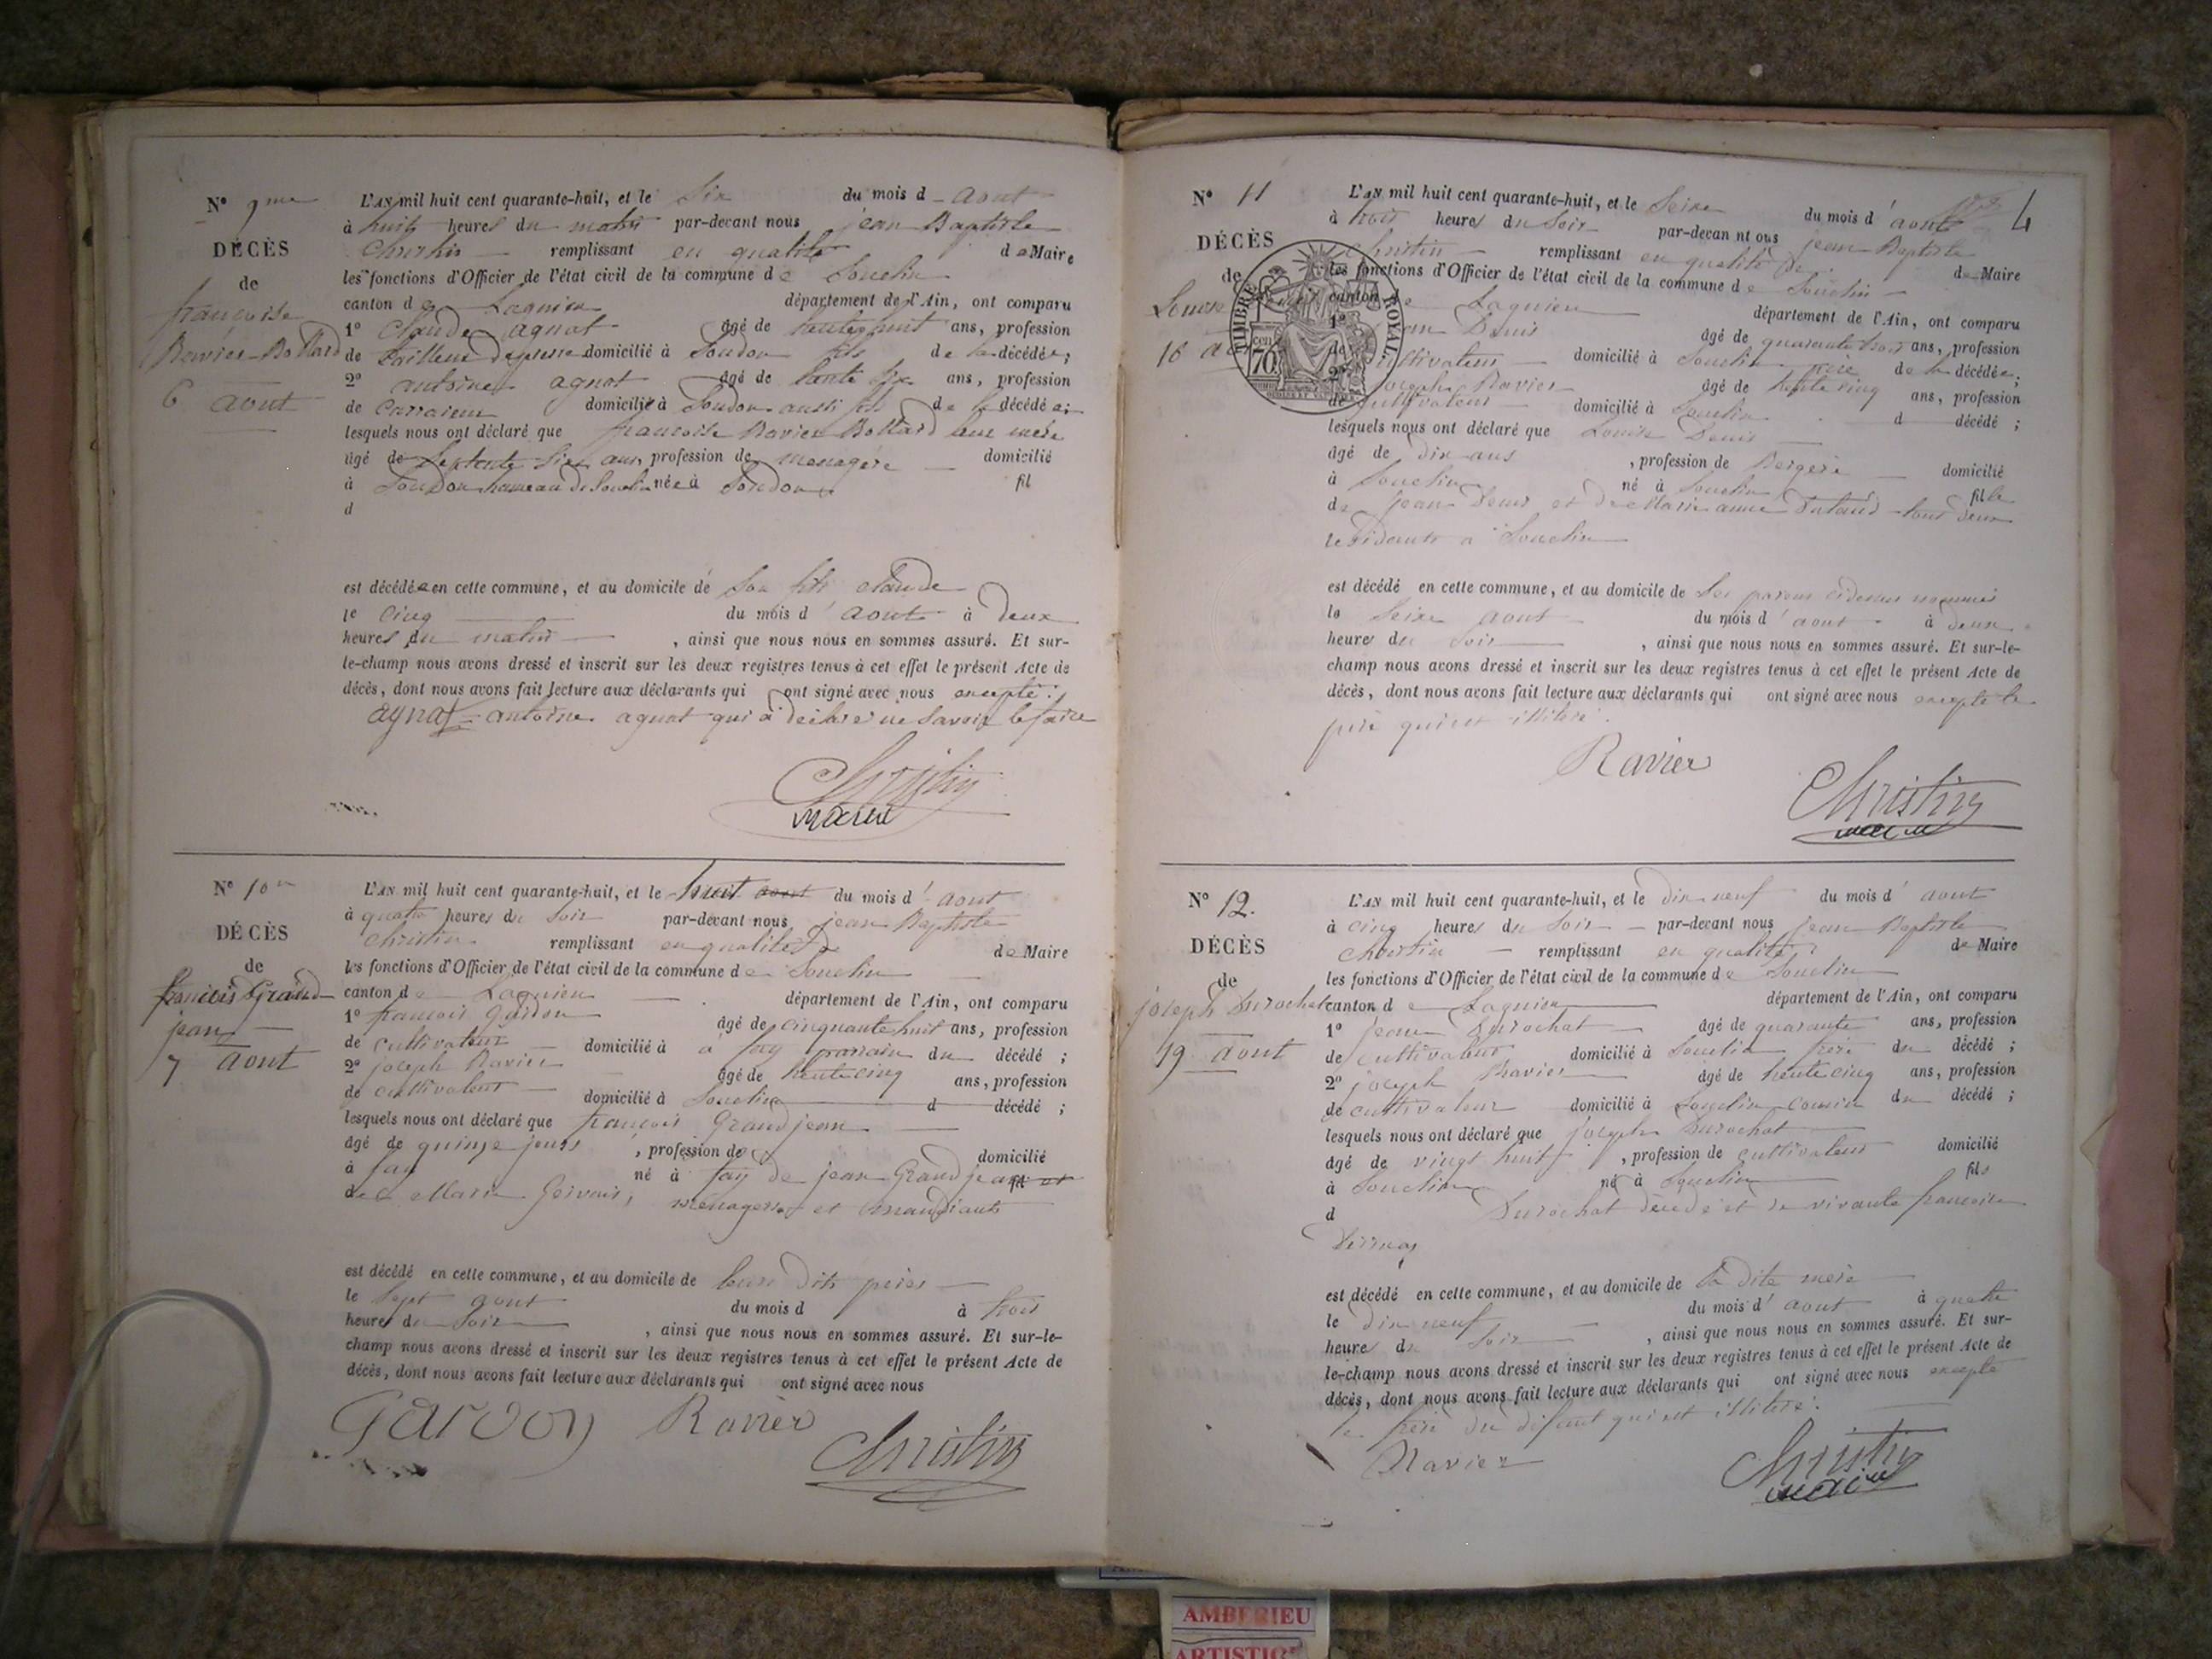 N° 9me
DÉCÈS
de
françoise
Bovier Bollard
6 aout
L'AN mil huit cent quarante-huit, et le Six du mois d aout
à huit heures du matin par-devant nous jean Baptiste
Christin remplissant en qualité de Maire
les fonctions d'Officier de l'état civil de la commune de Souclin
canton de Lagnieu département de l'Ain, ont comparu
1° Claude agnat âgé de ans, profession
de domicilié à Soudon fils de la décédée;
2° antoine agnat âgé de ans, profession
de domicilié à Soudon aussi fils de la décédée;
lesquels nous ont déclaré que françoise Bovier Bollard leur mère
âgé de Septente Six ans, profession de menagère domicilié
à Soudon hameau de Souclin née à Soudon fil
d
est décédée en cette commune, et au domicile de Son fils claude
le cinq du mois d'aout à Deux
heures du matin , ainsi que nous nous en sommes assuré. Et sur-
le-champ nous avons dressé et inscrit sur les deux registres tenus à cet effet le présent Acte de
décès, dont nous avons fait lecture aux déclarants qui ont signé avec nous excepté
agnat antoine agnat qui a déclaré ne Savoir le faire
Christin
maire
N° 10
DÉCÈS
de
francois Grand
jean
7 aout
L'AN mil huit cent quarante-huit, et le huit aout du mois d'aout
à quatre heures du Soir par-devant nous jean Baptiste
Christin remplissant en qualité de de Maire
les fonctions d'Officier de l'état civil de la commune de Souclin
canton de Lagnieu département de l'Ain, ont comparu
1° francois âgé de cinquante huit ans, profession
de cultivateur domicilié à à fay parrain du décédé;
2° joseph Ravier âgé de trente cinq ans, profession
de cultivateur domicilié à Souclin d décédé;
lesquels nous ont déclaré que francois Grandjean
âgé de quinze jours , profession de domicilié
à fay né à fay de jean Grandjean et fil
de Marie Gervais, menagers et mandiants
est décédé en cette commune, et au domicile de leurs dits pères
le Sept aout du mois d à trois
heures du Soir , ainsi que nous nous en sommes assuré. Et sur-le-
champ nous avons dressé et inscrit sur les deux registres tenus à cet effet le présent Acte de
décès, dont nous avons fait lecture aux déclarants qui ont signé avec nous
Gardon Ravier
Christin
4
N° 11
DÉCÈS
de
Louise
16
TIMBRE ROYAL
70 cen
L'AN mil huit cent quarante-huit, et le Seize du mois d'aout
à trois heures du Soir par-devan nt ous jean Baptiste
Christin remplissant en qualité de de Maire
les fonctions d'Officier de l'état civil de la commune de Souclin
canton de Lagnieu département de l'Ain, ont comparu
1° jean Denis âgé de quarante trois ans, profession
de cultivateur domicilié à Souclin père de la décédée;
2° joseph Ravier âgé de trente cinq ans, profession
de cultivateur domicilié à Souclin d décédé;
lesquels nous ont déclaré que Louise Denis
âgé de dix ans , profession de Bergère domicilié
à Souclin né à Souclin fille
de jean Denis et de Marie anne tous deux
residents a Souclin
est décédé en cette commune, et au domicile de Ses parens cidessus nommés
le Seize aout du mois d'aout à deux
heures du Soir , ainsi que nous nous en sommes assuré. Et sur-le-
champ nous avons dressé et inscrit sur les deux registres tenus à cet effet le présent Acte de
décès, dont nous avons fait lecture aux déclarants qui ont signé avec nous excepté le
père qui est illiteré.
Ravier
Christin
maire
N° 12.
DÉCÈS
de
joseph Durochat
19 aout
L'AN mil huit cent quarante-huit, et le dix neuf du mois d'aout
à cinq heures du Soir par-devant nous jean Baptiste
Christin remplissant en qualité de Maire
les fonctions d'Officier de l'état civil de la commune de Souclin
canton de Lagnieu département de l'Ain, ont comparu
1° jean Durochat âgé de quarante ans, profession
de cultivateur domicilié à Souclin frère du décédé;
2° joseph Ravier âgé de trente cinq ans, profession
de cultivateur domicilié à Souclin cousin du décédé;
lesquels nous ont déclaré que joseph Durochat
âgé de vingt huit , profession de cultivateur domicilié
à Souclin né à Souclin fils
d Durochat décédé et de vivante francoise
est décédé en cette commune, et au domicile de Sa dite mère
le dix neuf du mois d'aout à quatre
heures du Soir , ainsi que nous nous en sommes assuré. Et sur-
le-champ nous avons dressé et inscrit sur les deux registres tenus à cet effet le présent Acte de
décès, dont nous avons fait lecture aux déclarants qui ont signé avec nous excepté
le frère du défunt qui est illiteré.
Ravier
Christin
maire
AMBERIEU